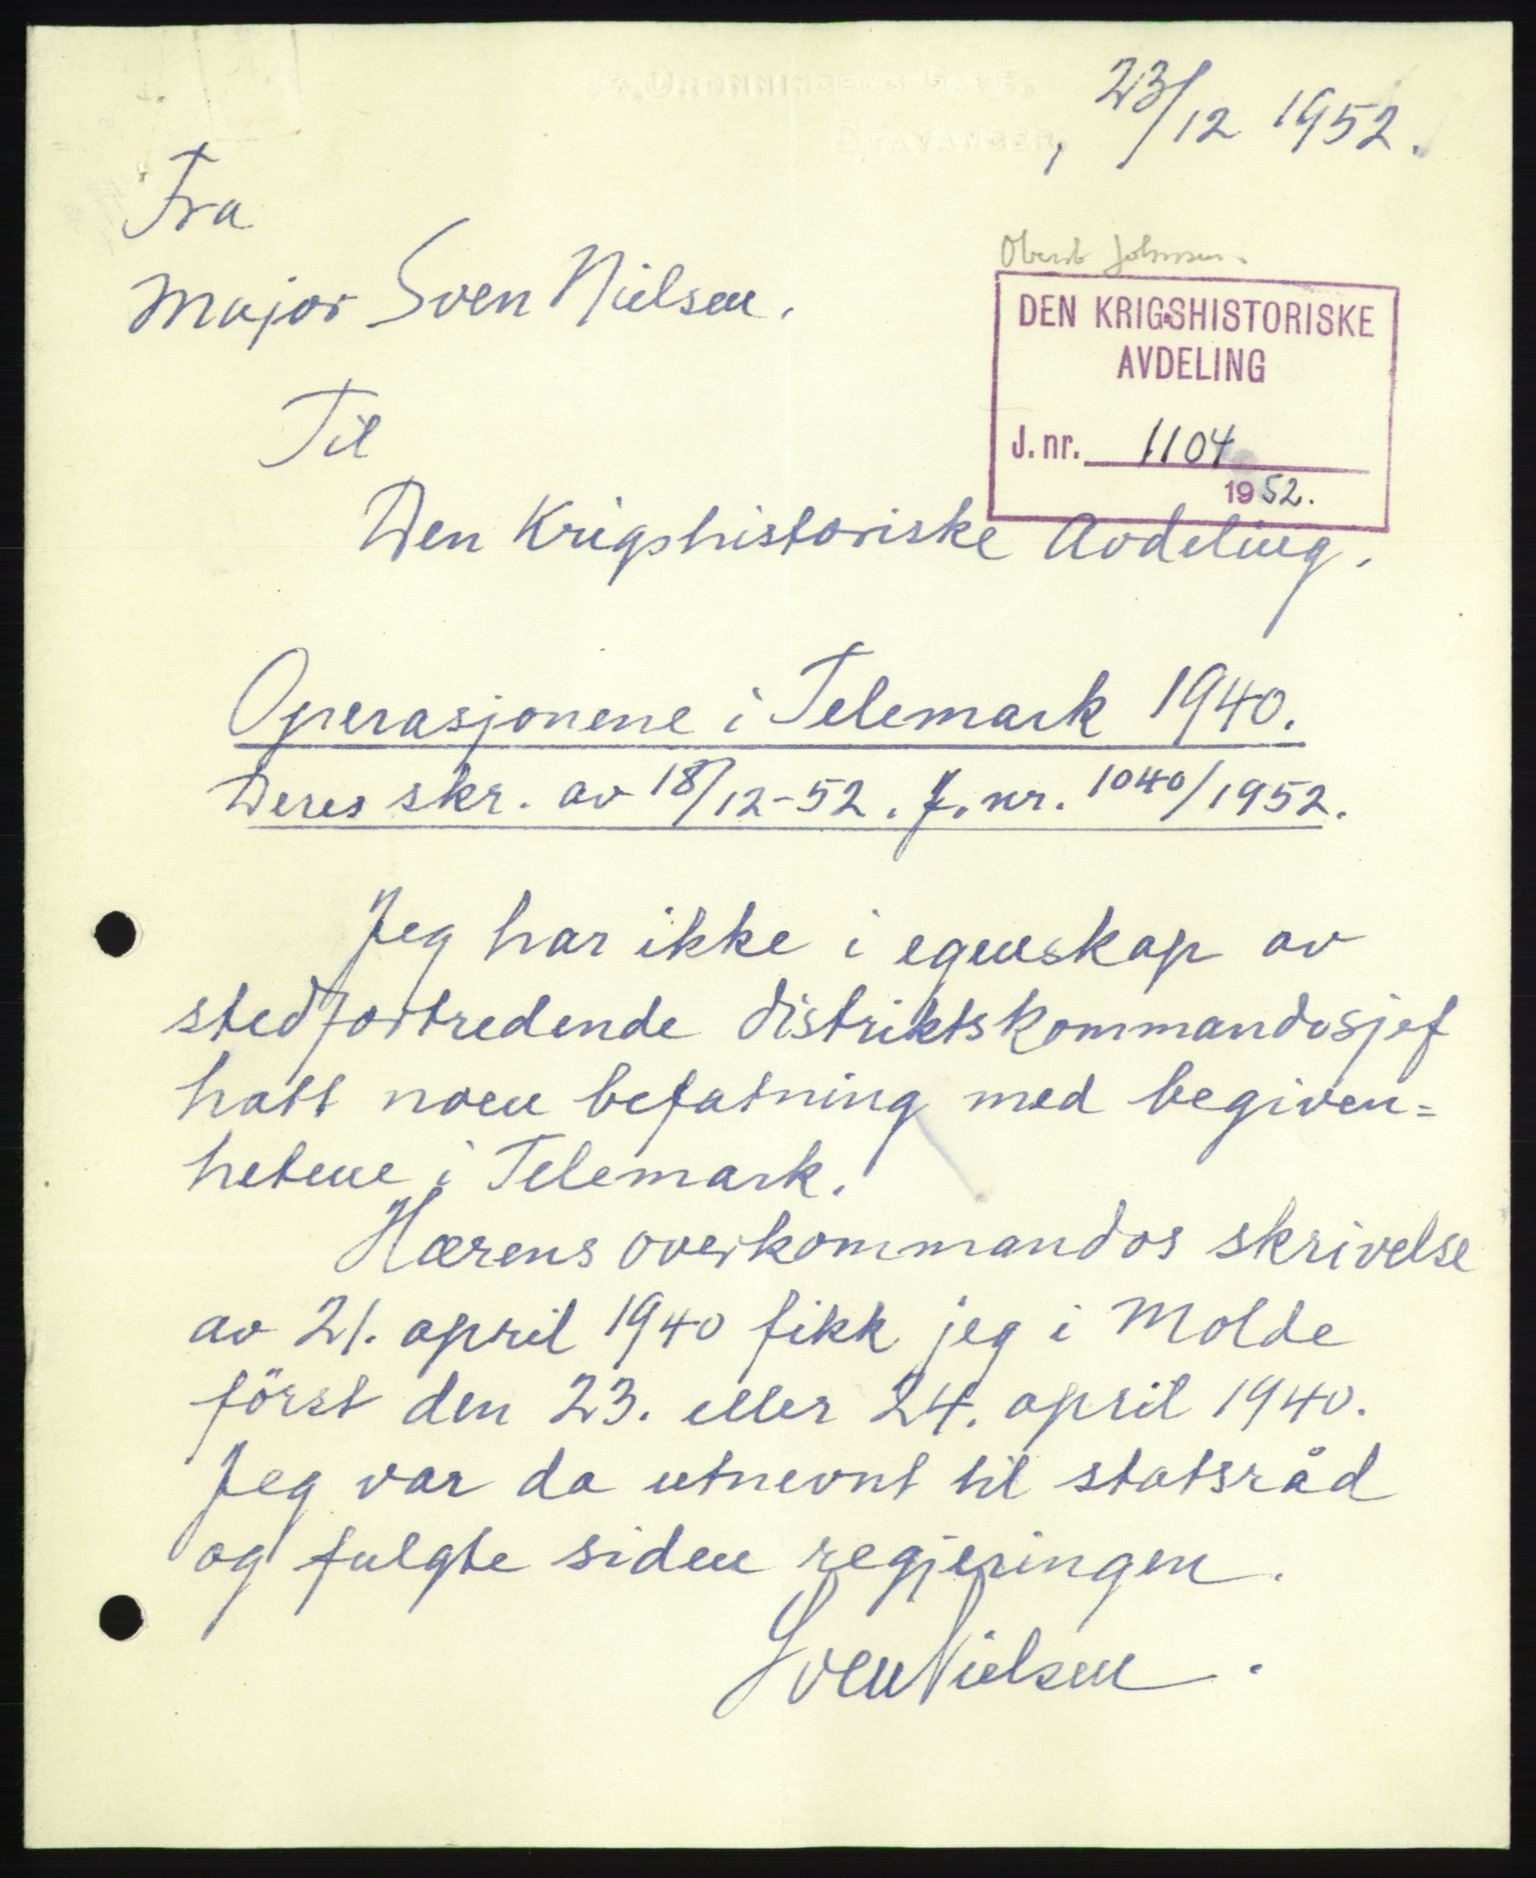 DRONNINGENS
STAVANGER,
, 23/12 1952.
Fra
Major Sven Nielsen.
Oberst Johnsen.
DEN KRIGSHISTORISKE
AVDELING
J. nr. 1104
1952.
Til
Den Krigshistoriske Avdeling.
Operasjonene i Telemark 1940.
Deres skr. av 18/12-52. J. nr. 1040/1952.
Jeg har ikke i egenskap av
stedfortredende distriktskommandosjef
hatt noen befatning med begiven=
hetene i Telemark.
Hærens overkommandos skrivelse
av 21. april 1940 fikk jeg i Molde
först den 23. eller 24. april 1940.
Jeg var da utnevnt til statsråd
og fulgte siden regjeringen.
Sven Nielsen.